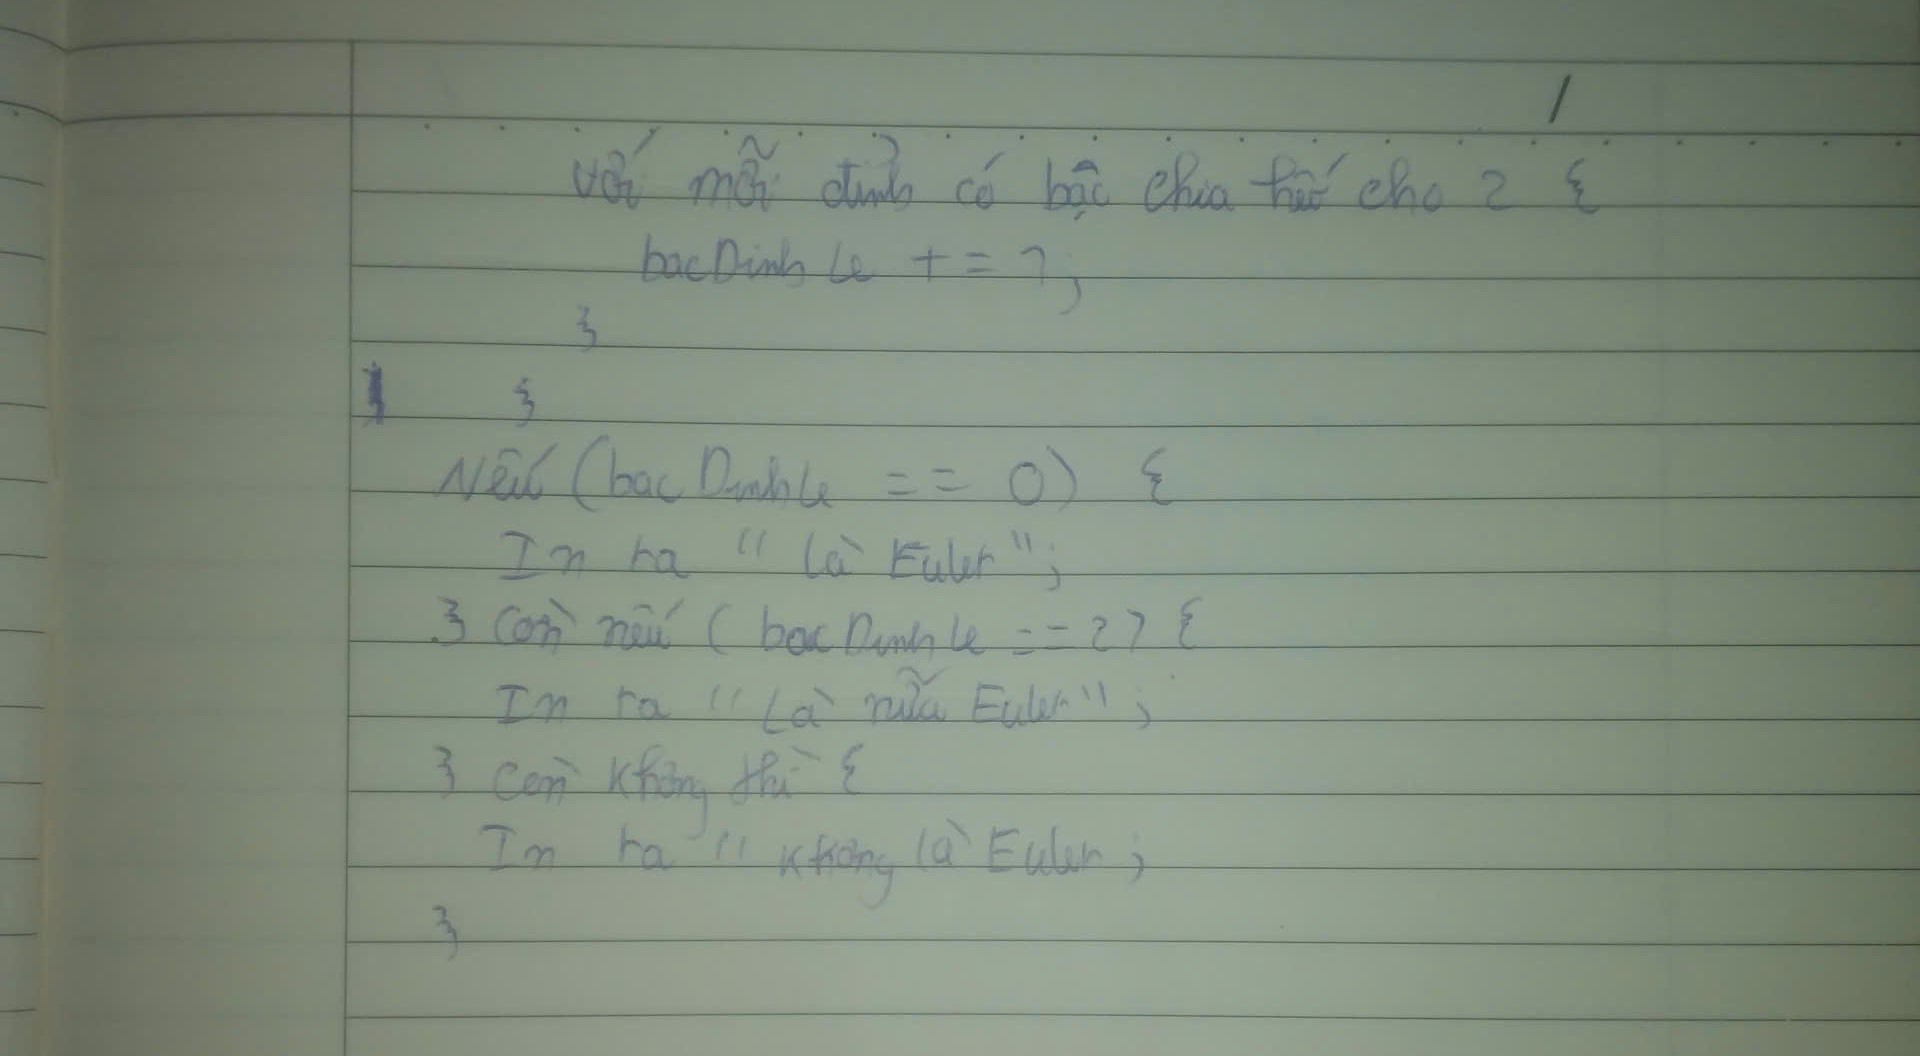 với mỗi đỉnh có bậc chia hết cho 2 {
bacDinhLe += 1;
}
}
Nếu (bacDinhLe == 0) {
In ra "là Euler";
} Còn nếu (bacDinhLe == 2) {
In ra "Là nữa Euler";
} Còn không thì {
In ra "không là Euler;
}